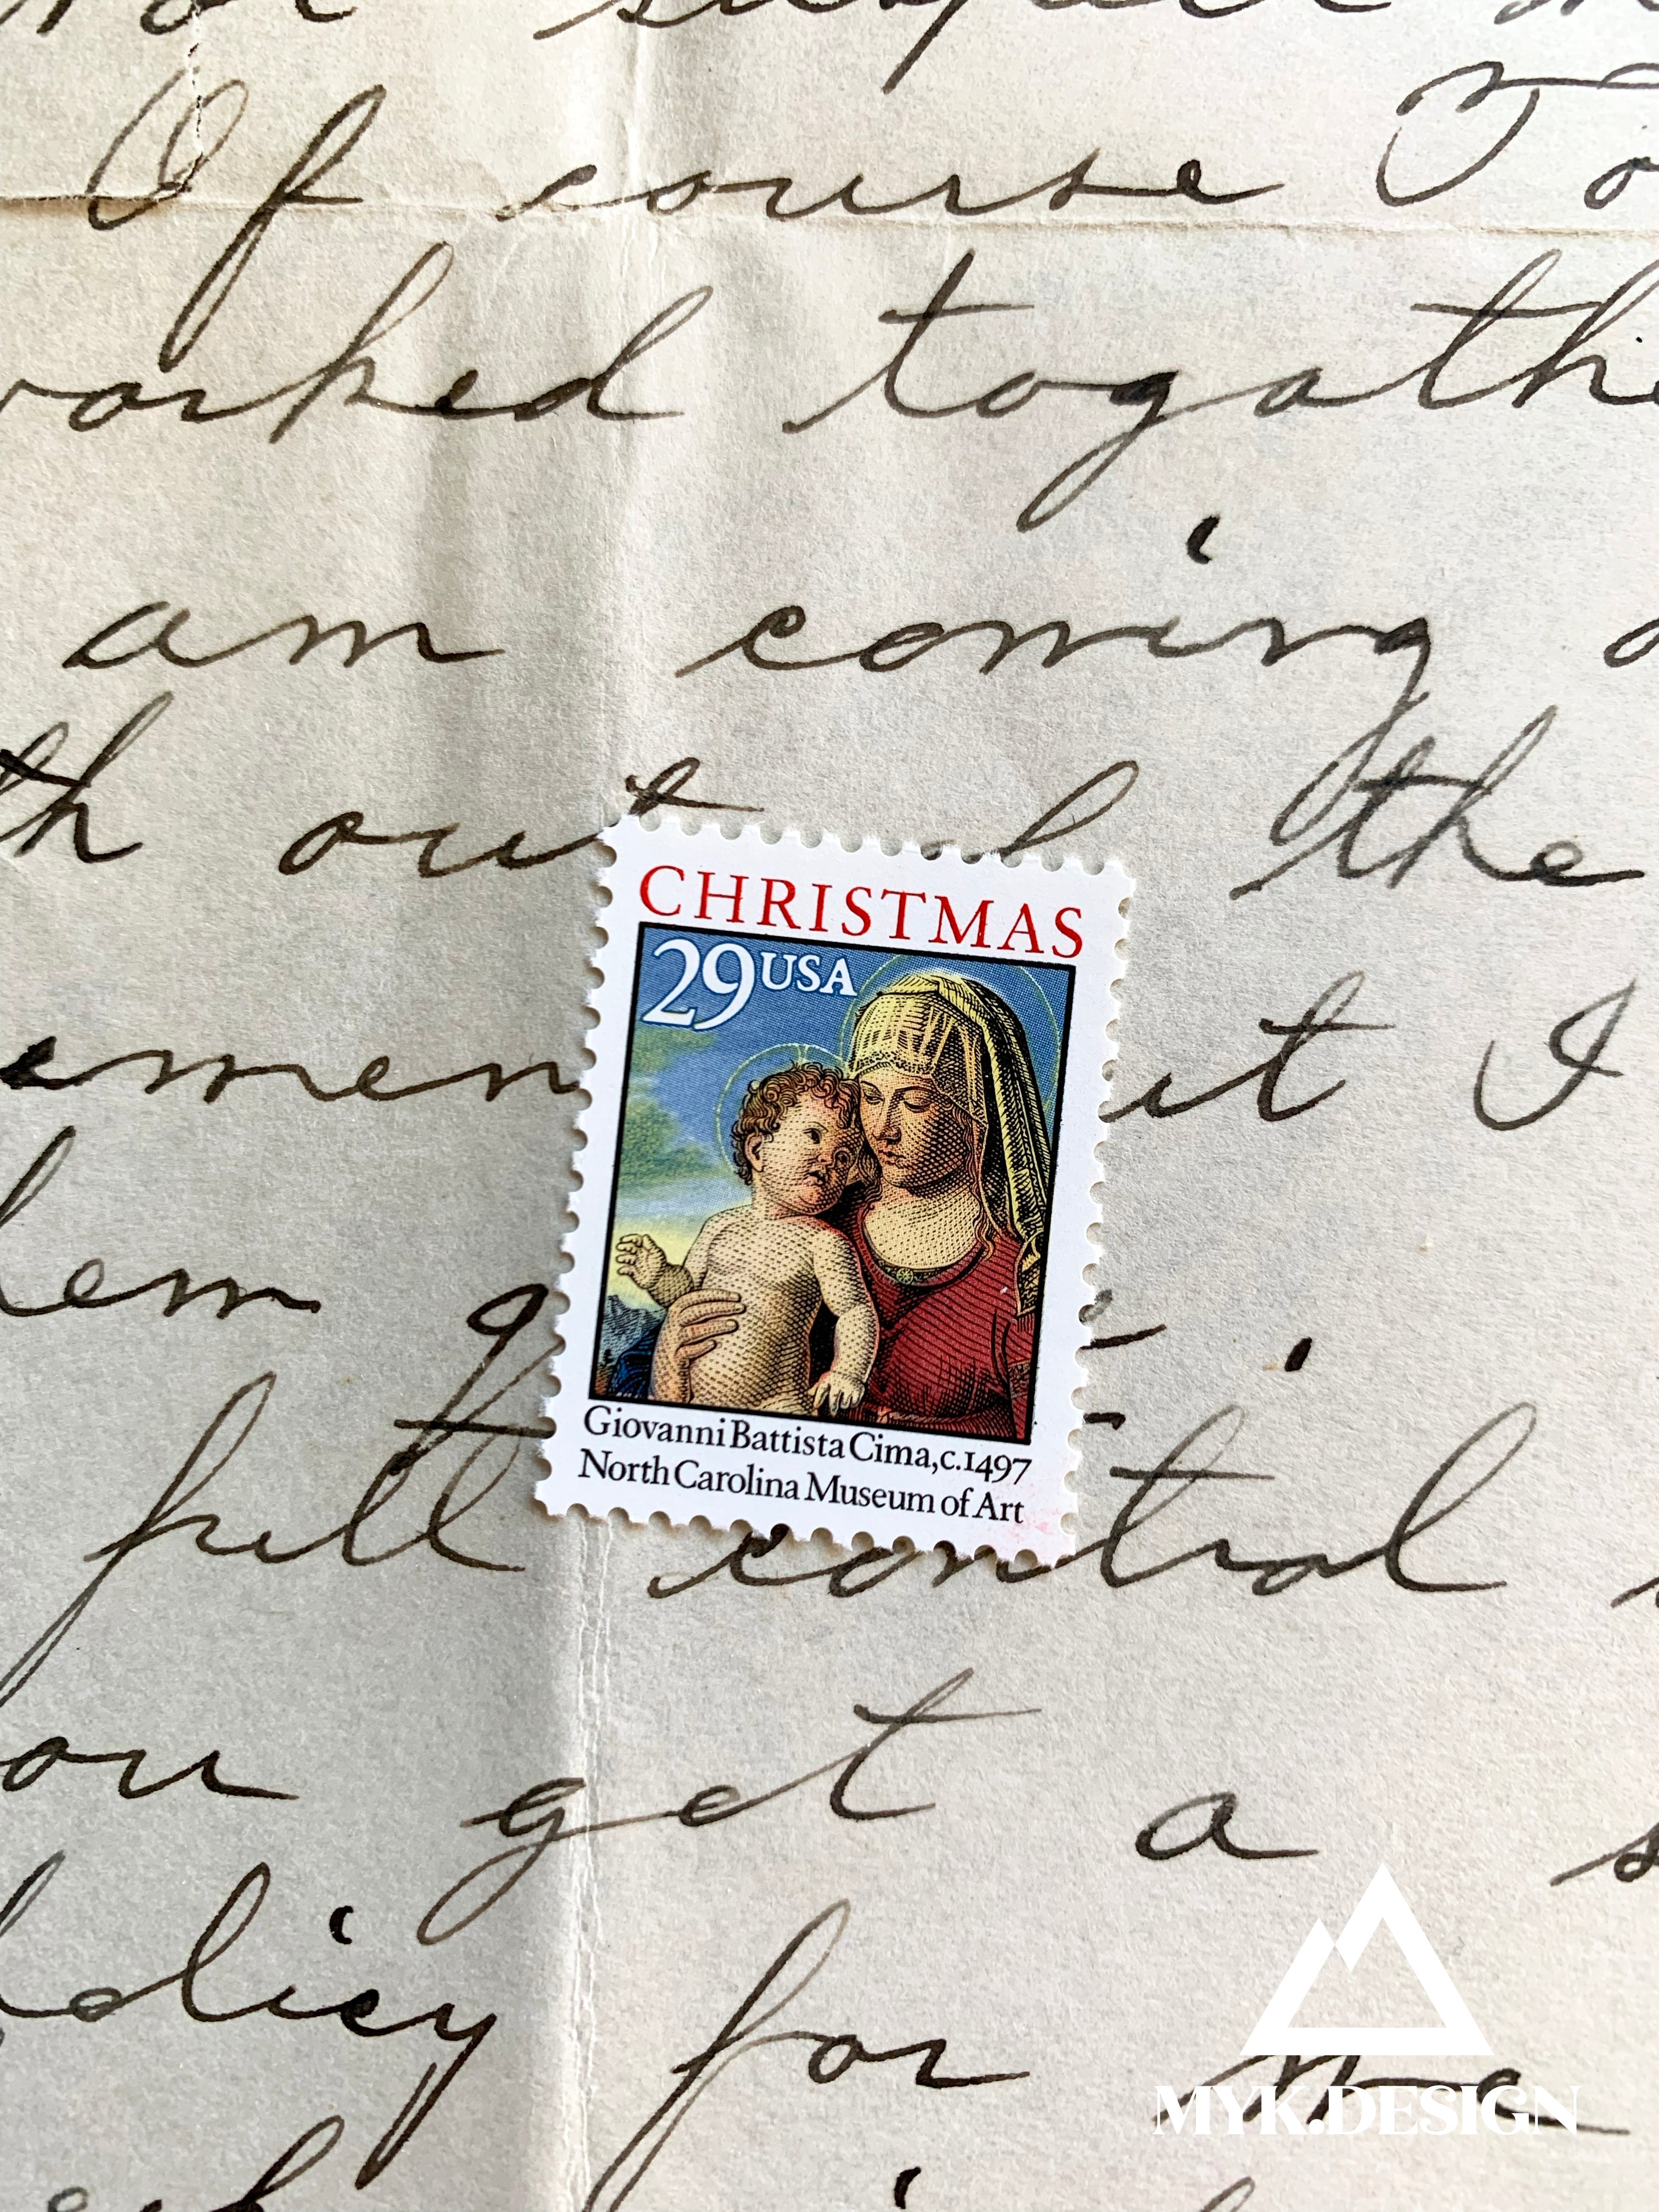 suspect
Of course To
worked togathe
am coming
th out the
CHRISTMAS
29 USA
emen it I
hem
Giovanni Battista Cima, c.1497
North Carolina Museum of Art
full control
ou get a s
policy for the
MYK.DESIGN